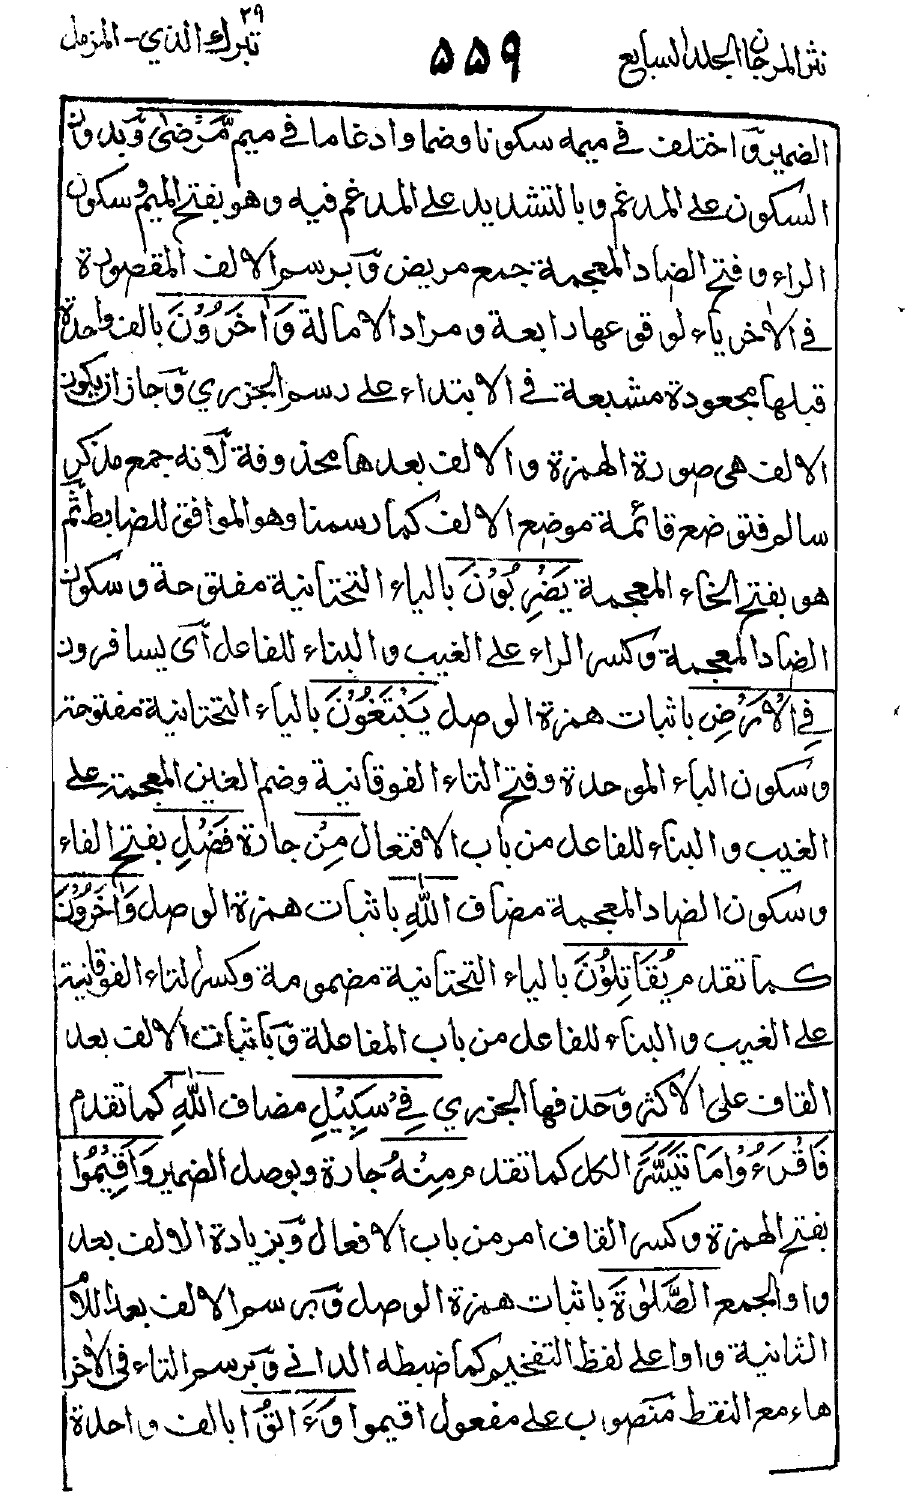 نثر المرجان الجلد السابع
۵۵۹
تبرك الذي ۲۹ - المزمل
الضمير وٓاختلف في ميمه سكونا وضما وادغاما في ميم مَّرْضٰى وٓبدون
السكون على المدغم وبالتشديد على المدغم فيه وهو بفتح الميم وسكون
الراء وفتح الضاد المعجمة جمع مريض وٓبرسم الالف المقصورة
في الاخر ياء لوقوعها رابعة ومراد الامالة وَاٰخَرُوْنَ بالف واحدة
قبلها مجعودة مشبعة في الابتداء على رسم الجزري وٓجاز ان يكون
الالف هي صورة الهمزة والالف بعدها محذوفة لٓانه جمع مذكر
سالم فتوضع قائمة موضع الالف كما رسمنا وهو الموافق للضابط ثم
هو بفتح الخاء المعجمة يَضْرِبُوْنَ بالياء التحتانية مفتوحة وسكون
الضاد المعجمة وكسر الراء على الغيب والبناء للفاعل آي يسافرون
فِي الْاَرْضِ باثبات همزة الوصل يَبْتَغُوْنَ بالياء التحتانية مفتوحة
وسكون الباء الموحدة وفتح التاء الفوقانية وضم الغين المعجمة على
الغيب والبناء للفاعل من باب الافتعال مِنْ جارة فَضْلِ بفتح الفاء
وسكون الضاد المعجمة مضاف اللّٰهِ باثبات همزة الوصل وَاٰخَرُوْنَ
كما تقدم يُقَاتِلُوْنَ بالياء التحتانية مضمومة وكسر التاء الفوقانية
على الغيب والبناء للفاعل من باب المفاعلة وٓباثبات الالف بعد
القاف على الاكثر وٓحذفها الجزري فِيْ سَبِيْلِ مضاف اللّٰهِ كما تقدم
فَاقْرَءُوْا مَا تَيَسَّرَ الكل كما تقدم مِنْهُ جارة وبوصل الضمير وَاَقِيْمُوا
بفتح الهمزة وكسر القاف امر من باب الافعال وٓبزيادة الالف بعد
واو الجمع الصَّلٰوةَ باثبات همزة الوصل وٓبرسم الالف بعد اللام
الثانية واوا على لفظ التفخيم كما ضبطه الداني وٓبرسم التاء في الاخر
هاء مع النقط منصوب على مفعول اقيموا وَءَاتُوا بالف واحدة